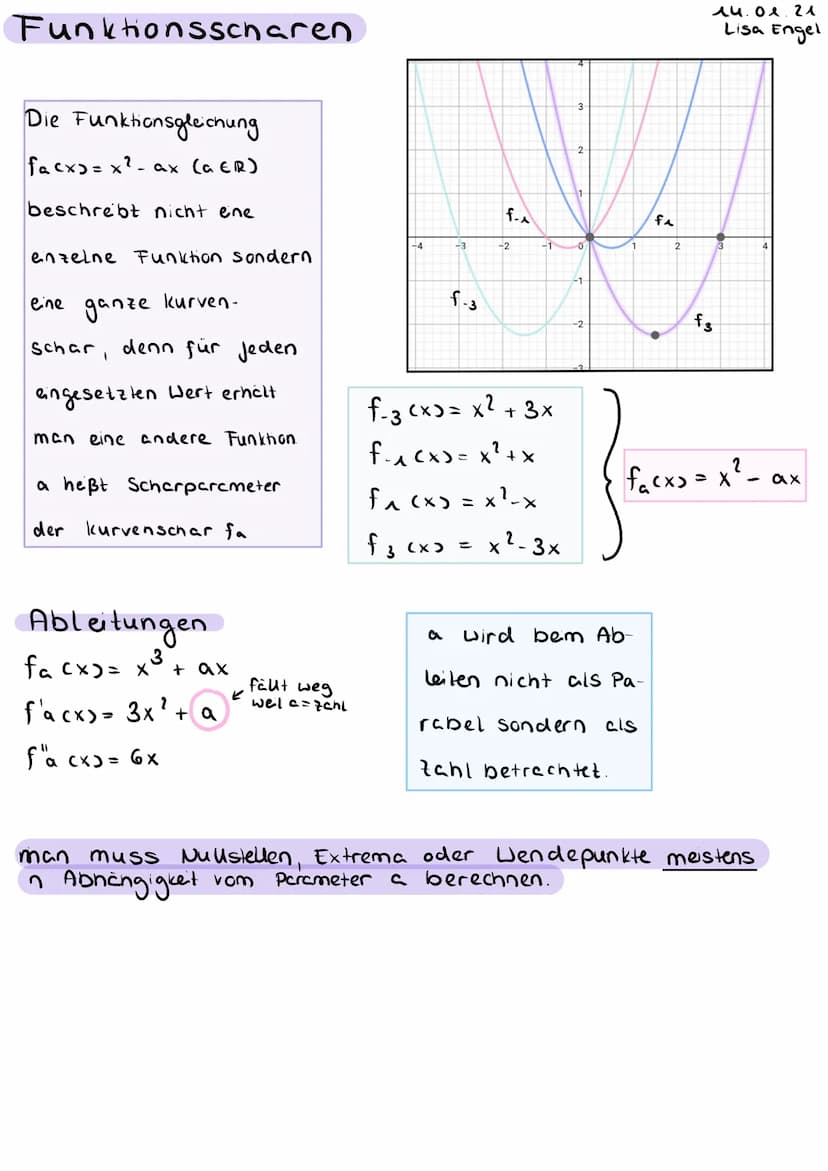 Funktionsscharen
14.01.21
Lisa Engel
Die Funktionsgleichung
fa(x) = x² - ax (a ∈ ℝ)
beschreibt nicht eine
einzelne Funktion sondern
eine ganze kurven-
schar, denn für jeden
eingesetzten Wert erhält
man eine andere Funktion
a heißt Scharparameter
der kurvenschar fa
4
3
2
1
f-1
f1
-4 -3 -2 -1 0 1 2 3 4
-1
f-3
-2
f3
-3
f-3(x) = x² + 3x
f-1(x) = x² + x
f1(x) = x² - x
f3(x) = x² - 3x
fa(x) = x² - ax
Ableitungen
fa(x) = x³ + ax
f'a(x) = 3x² + a
fällt weg
weil a = zahl
f"a(x) = 6x
a wird beim Ab-
leiten nicht als Pa-
rabel sondern als
Zahl betrachtet.
man muss Nullstellen, Extrema oder Wendepunkte meistens
in Abhängigkeit vom Parameter a berechnen.